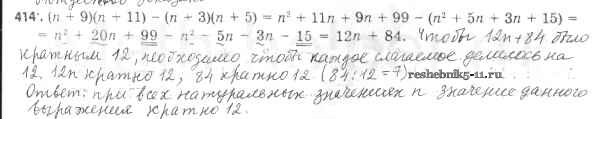 414. (n + 9)(n + 11) − (n + 3)(n + 5) = n² + 11n + 9n + 99 − (n² + 5n + 3n + 15) =
= n² + 20n + 99 − n² − 5n − 3n − 15 = 12n + 84. Чтобы 12n+84 было
кратным 12, необходимо чтобы каждое слагаемое делилось на
12. 12n кратно 12, 84 кратно 12 (84:12=7)
reshebnik5-11.ru
Ответ: при всех натуральных значениях n значение данного
выражения кратно 12.